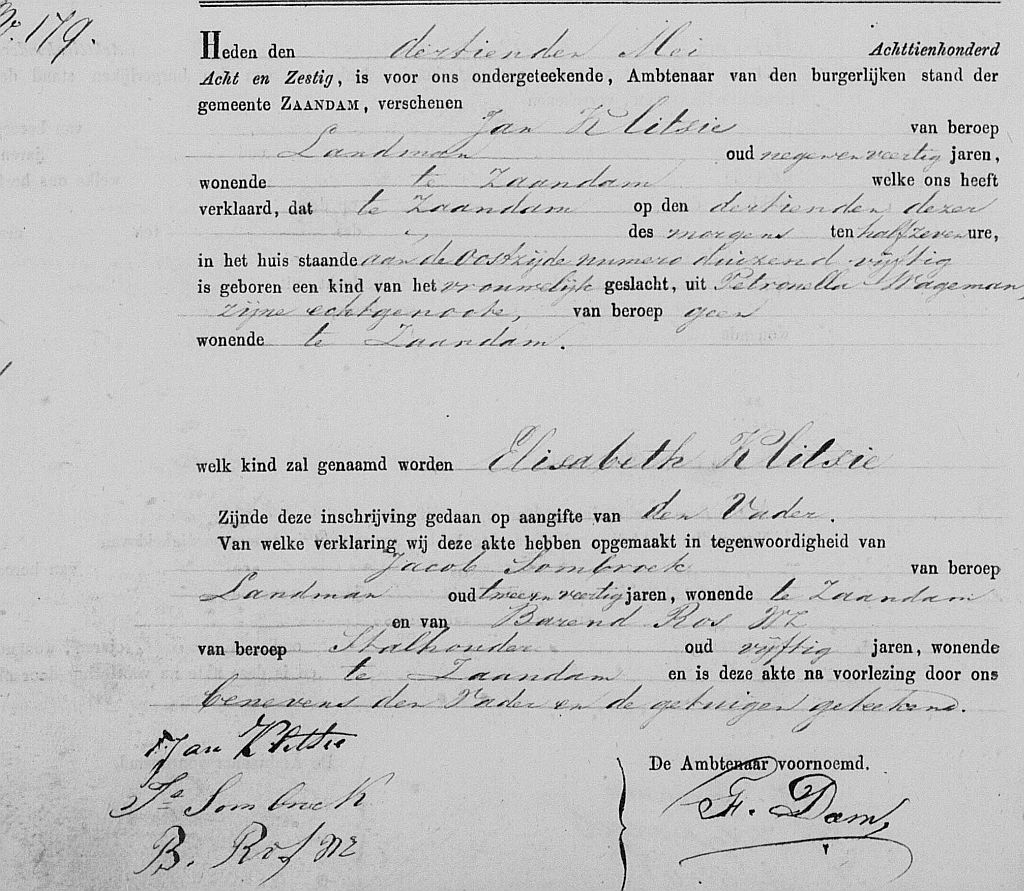 No. 179.
Heden den dertienden Mei Achttienhonderd
Acht en Zestig, is voor ons ondergeteekende, Ambtenaar van den burgerlijken stand der
gemeente ZAANDAM, verschenen
Jan Klitsie van beroep
Landman oud negen en veertig jaren,
wonende te Zaandam welke ons heeft
verklaard, dat te Zaandam op den dertienden dezer
des morgens ten half zeven ure,
in het huis staande aan de Oostzijde numero duizend vijftig
is geboren een kind van het vrouwelijk geslacht, uit Petronella Wageman,
zijne echtgenoote, van beroep geen
wonende te Zaandam.
welk kind zal genaamd worden Elisabeth Klitsie
Zijnde deze inschrijving gedaan op aangifte van den Vader.
Van welke verklaring wij deze akte hebben opgemaakt in tegenwoordigheid van
Jacob Sombroek van beroep
Landman oud twee en veertig jaren, wonende te Zaandam
en van Barend Ros Nz
van beroep Stalhouder oud vijftig jaren, wonende
te Zaandam en is deze akte na voorlezing door ons
benevens den Vader en de getuigen geteekend.
Jan Klitsie
Jb Sombroek
B. Ros Nz
De Ambtenaar voornoemd.
F. Dam,